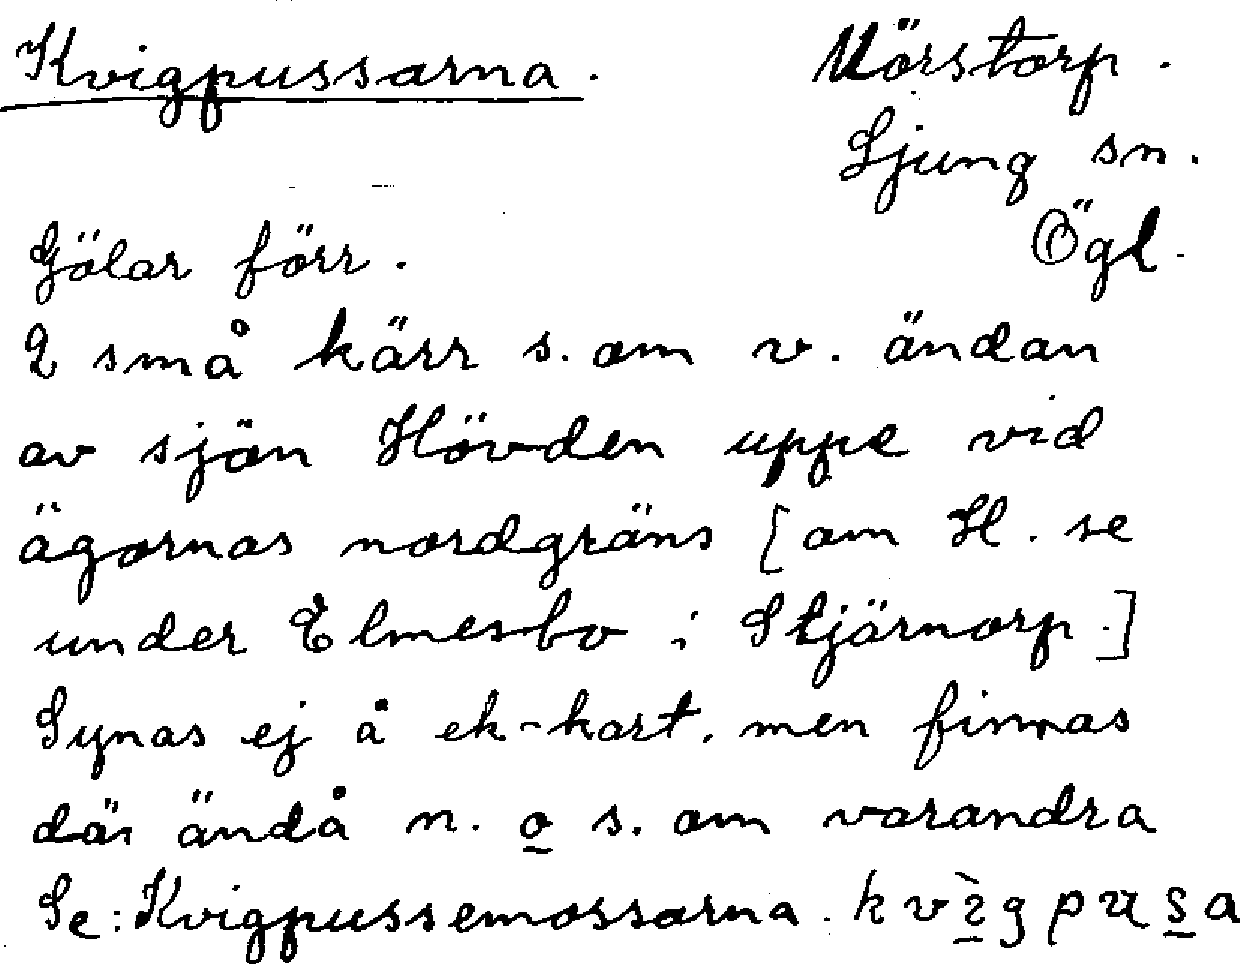 Kvigpussarna.
Mörstorp.
Ljung sn.
Ögl.
Gölar förr.
2 små kärr s. om v. ändan
av sjön Hövden uppe vid
ägornas nordgräns [om H. se
under Elmesbo i Stjärnorp.]
Synas ej å ek-kart. men finnas
där ändå n. o s. om varandra
Se: Kvigpussemossarna.